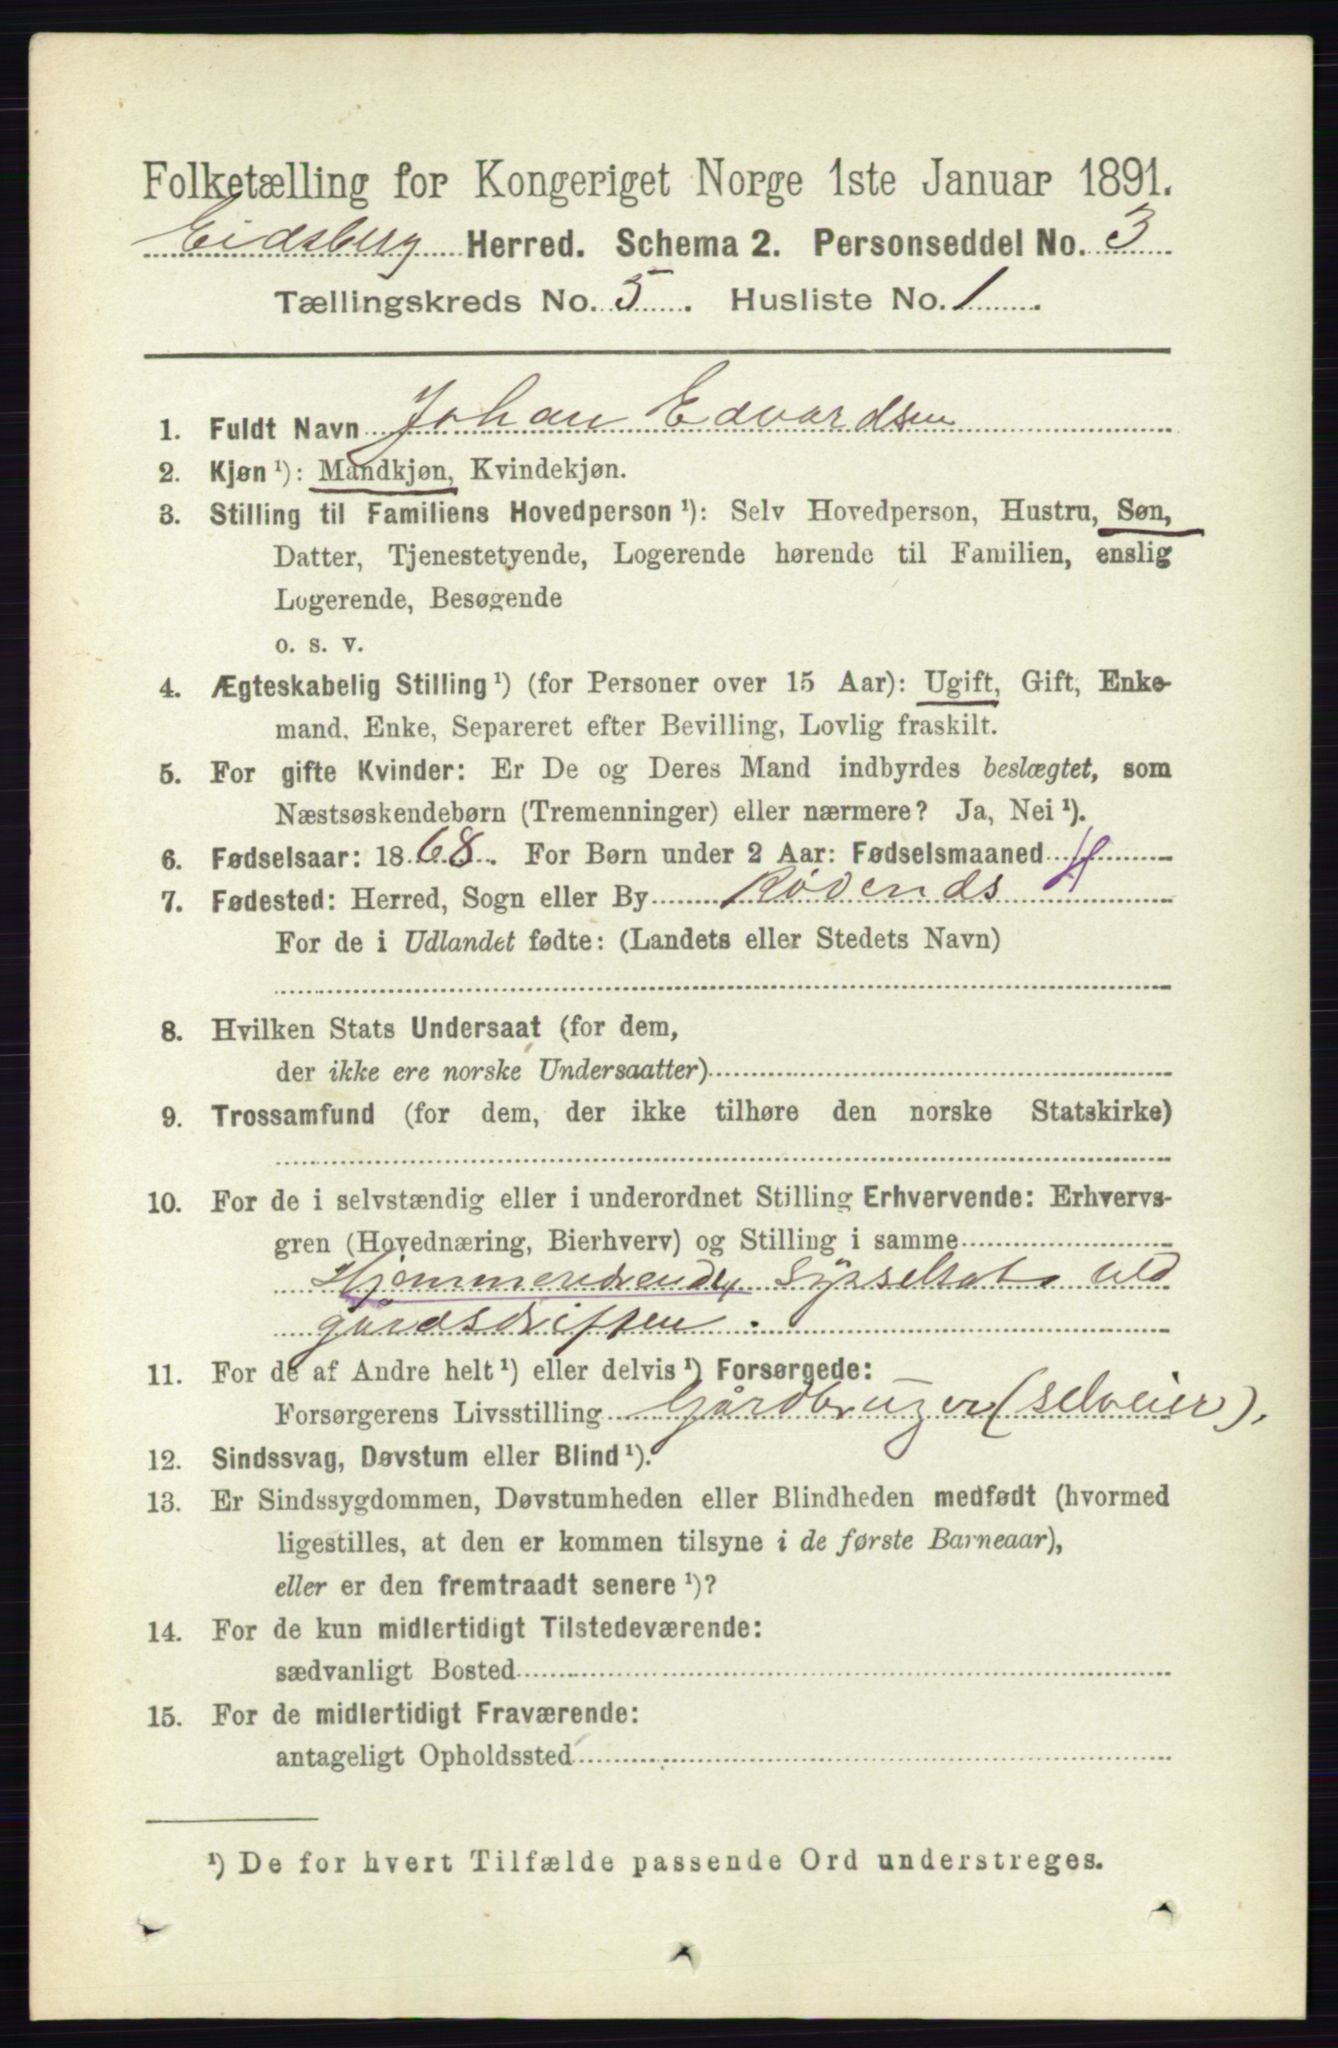 Folketælling for Kongeriget Norge 1ste Januar 1891.
Eidsberg Herred. Schema 2. Personseddel No. 3
Tællingskreds No. 5. Husliste No. 1.
1. Fuldt Navn Johan Edvardsen
2. Kjøn ¹): Mandkjøn, Kvindekjøn.
3. Stilling til Familiens Hovedperson ¹): Selv Hovedperson, Hustru, Søn,
Datter, Tjenestetyende, Logerende hørende til Familien, enslig
Logerende, Besøgende
o. s. v.
4. Ægteskabelig Stilling ¹) (for Personer over 15 Aar): Ugift, Gift, Enke-
mand, Enke, Separeret efter Bevilling, Lovlig fraskilt.
5. For gifte Kvinder: Er De og Deres Mand indbyrdes beslægtet, som
Næstsøskendebørn (Tremenninger) eller nærmere? Ja, Nei ¹).
6. Fødselsaar: 1868. For Børn under 2 Aar: Fødselsmaaned
7. Fødested: Herred, Sogn eller By Rødends H
For de i Udlandet fødte: (Landets eller Stedets Navn)
8. Hvilken Stats Undersaat (for dem,
der ikke ere norske Undersaatter)
9. Trossamfund (for dem, der ikke tilhøre den norske Statskirke)
10. For de i selvstændig eller i underordnet Stilling Erhvervende: Erhvervs-
gren (Hovednæring, Bierhverv) og Stilling i samme
Hjemmeværende, sysselsat ved
gårdsdriften.
11. For de af Andre helt ¹) eller delvis ¹) Forsørgede:
Forsørgerens Livsstilling Gårdbruger (selveier),
12. Sindssvag, Døvstum eller Blind ¹).
13. Er Sindssygdommen, Døvstumheden eller Blindheden medfødt (hvormed
ligestilles, at den er kommen tilsyne i de første Barneaar),
eller er den fremtraadt senere ¹)?
14. For de kun midlertidigt Tilstedeværende:
sædvanligt Bosted
15. For de midlertidigt Fraværende:
antageligt Opholdssted
¹) De for hvert Tilfælde passende Ord understreges.